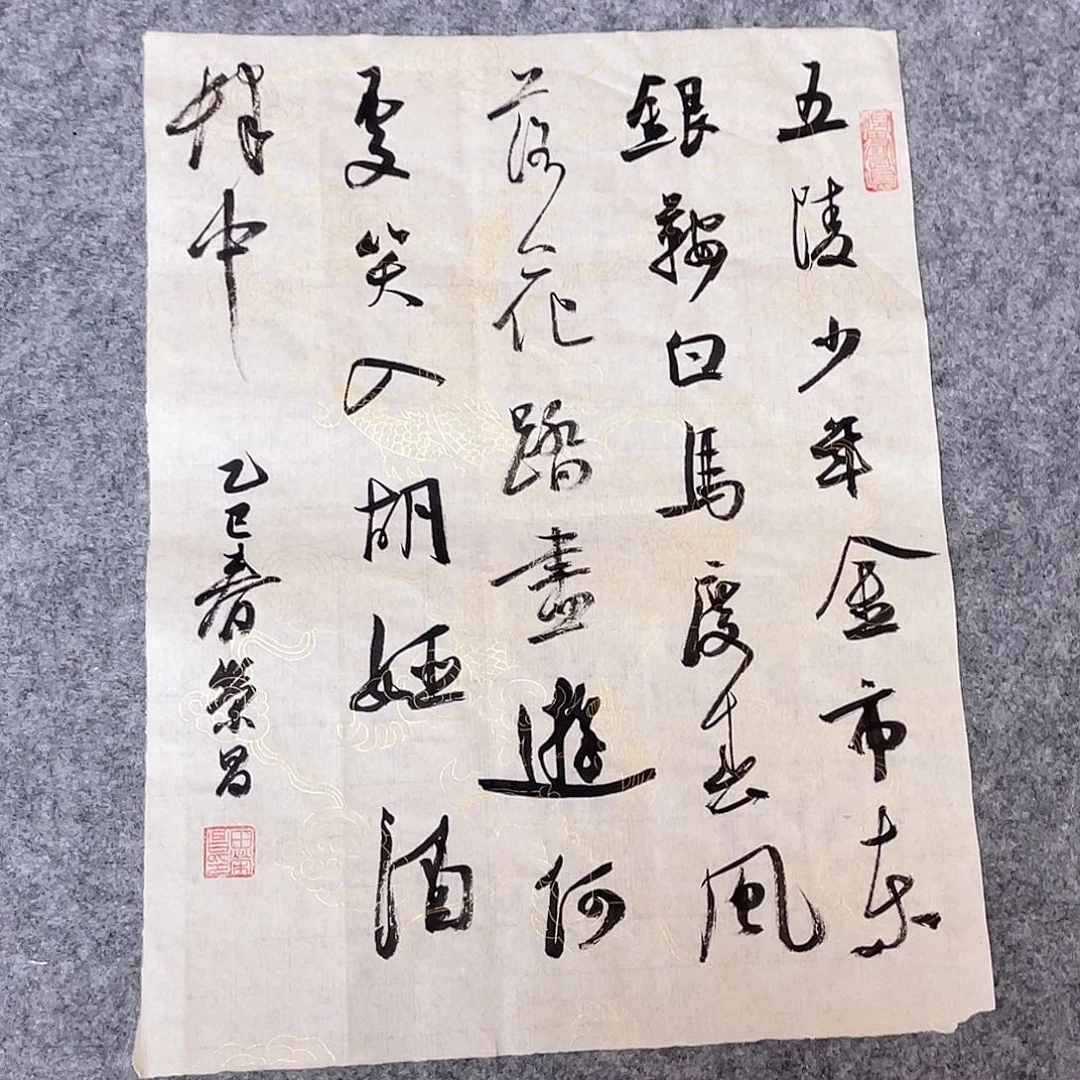 五陵少年金市东
銀鞍白馬度春風
落花踏盡遊何
處笑入胡姬酒
肆中
乙巳春荣昌